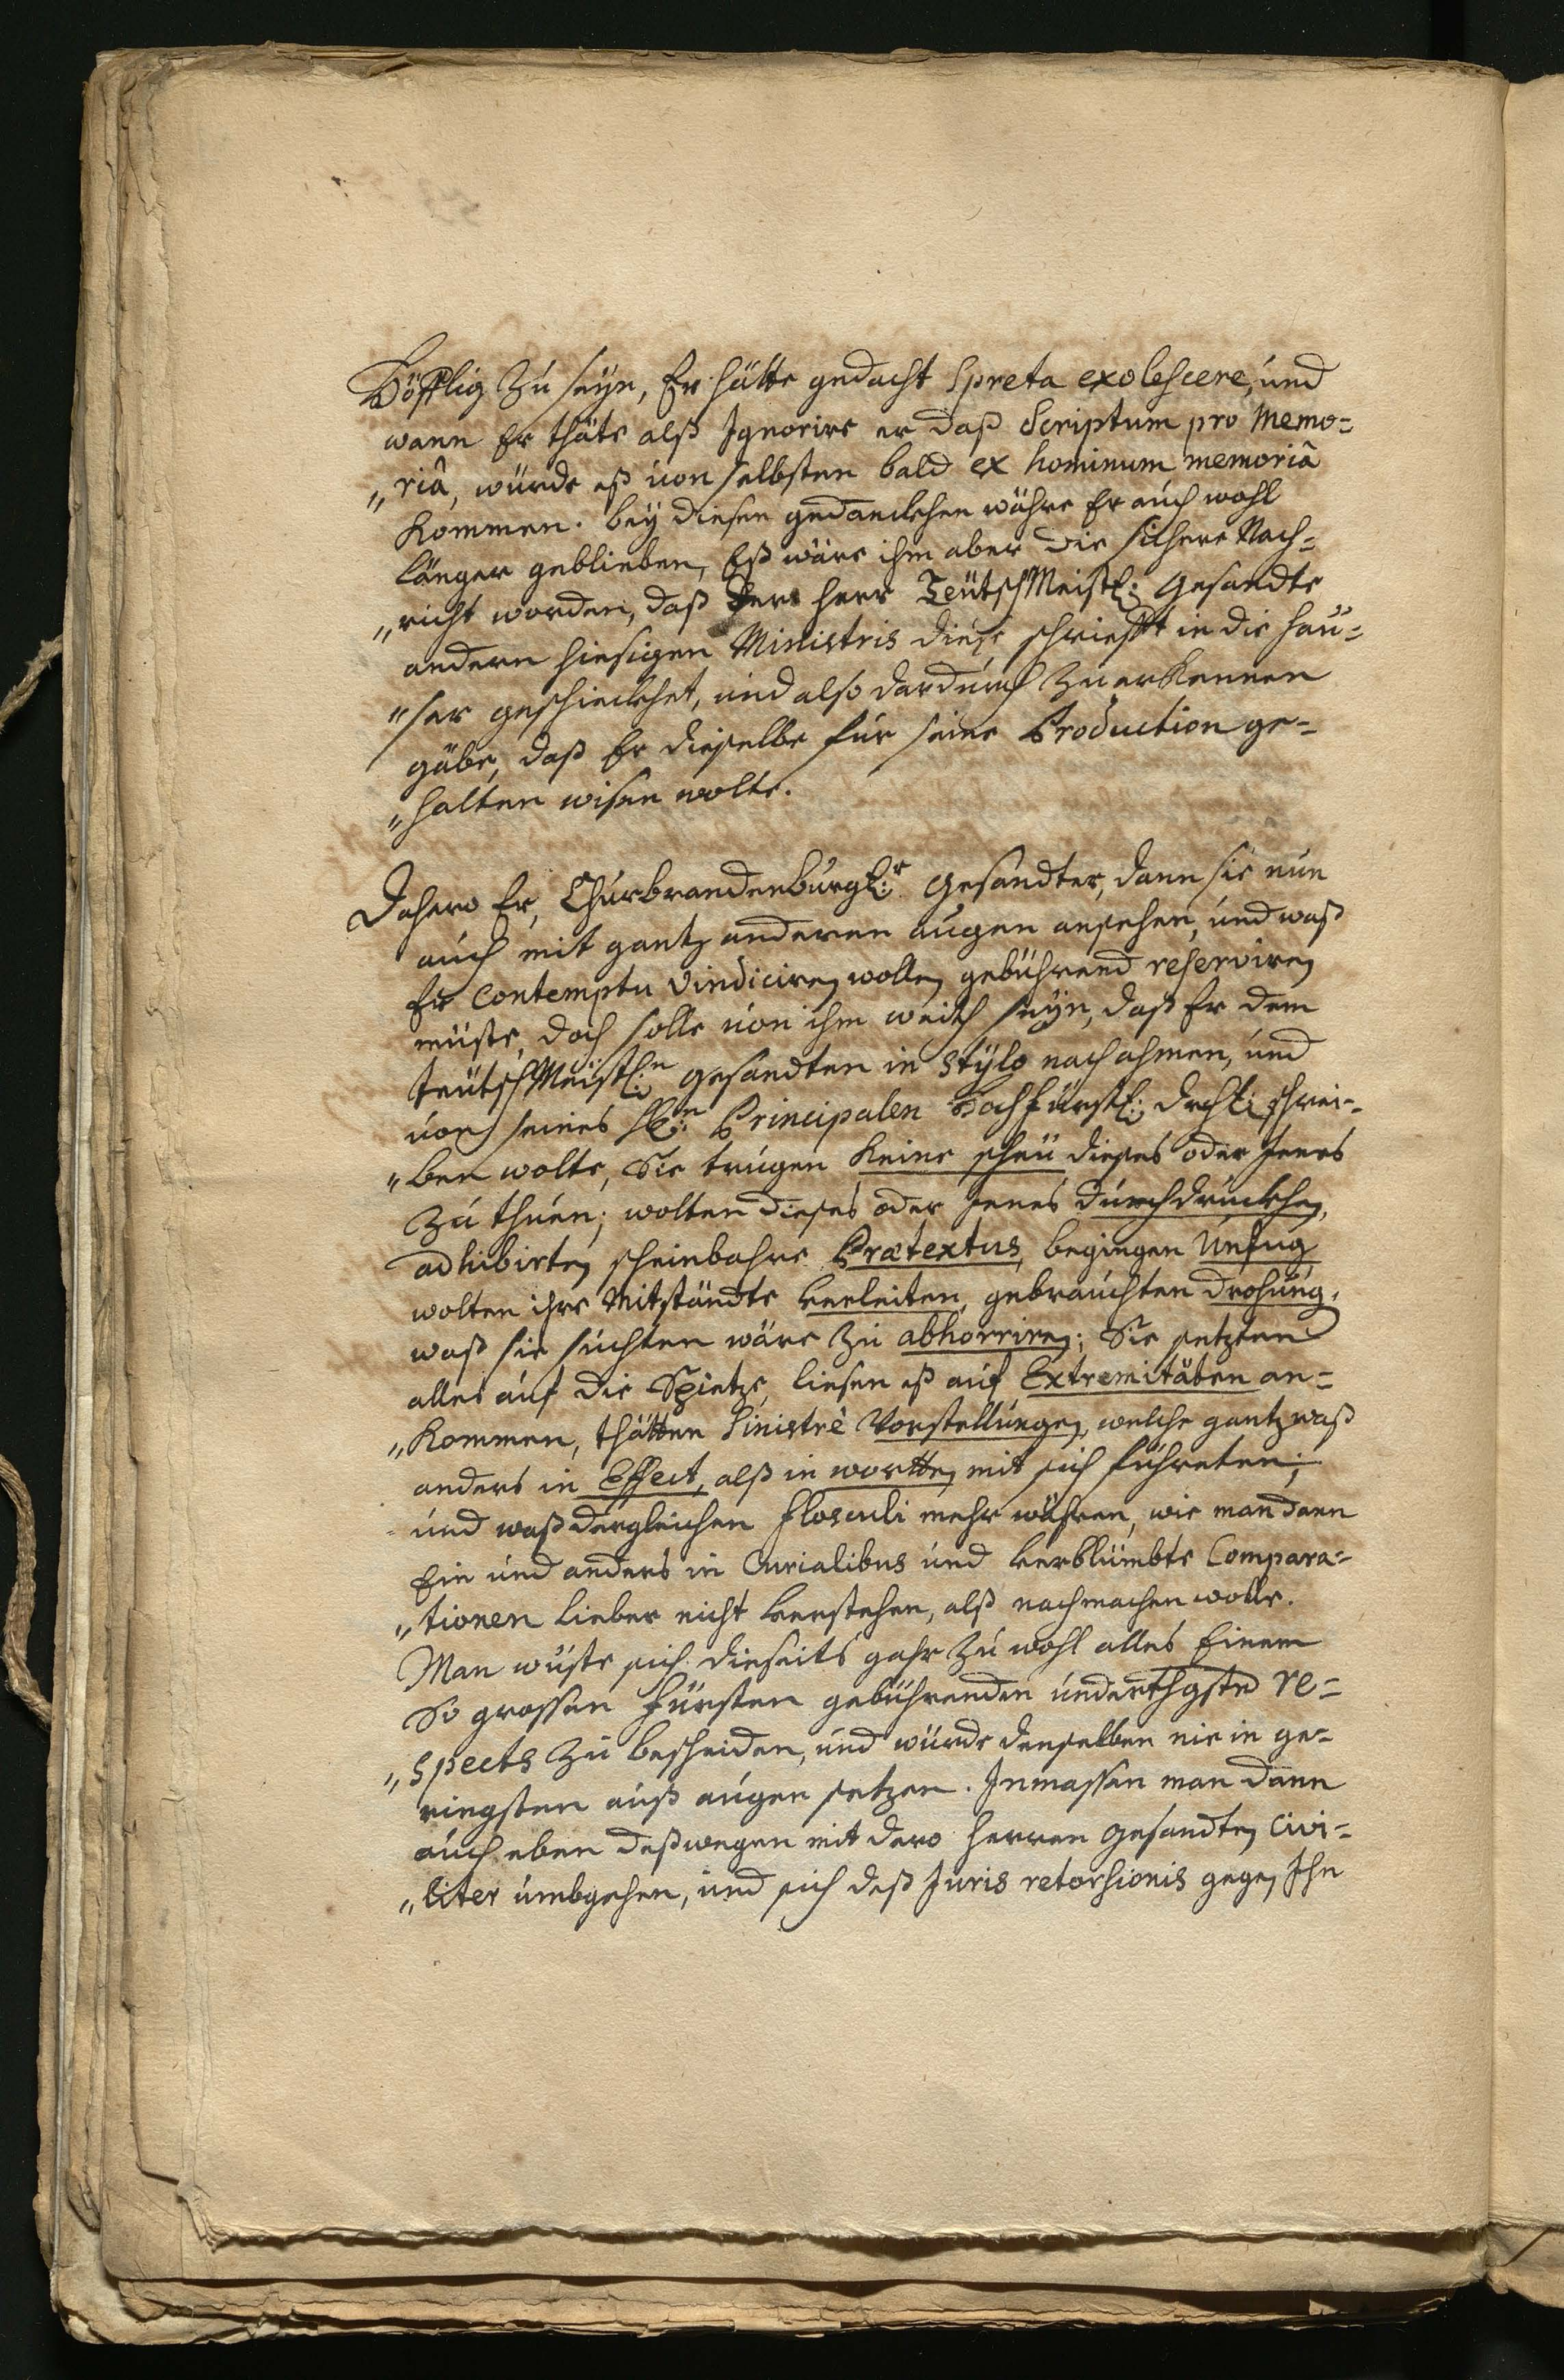 Höfflig zu seyn, Er hätte gedacht Spreta exolescere, und
wann Er thäte alß Ignorire er daß Scriptum pro Memo=
„riâ, würde eß von selbsten bald ex hominum memoriâ
kommen. bey diesen gedanckhen währe Er auch wohl
länger geblieben, Eß wäre ihm aber die sichere Nach=
„richt worden, daß der Herr TeütschMeistl: Gesandte
andern hiesigen Ministris diese schriefft in die Häu=
„ser geschieckhet, und also dardurch zuerkennen
gäbe, daß Er dieselbe für seine Production ge=
„halten wisen wolte.
Dahero Er, Churbrandenburgl:r Gesandter, dann sie nun
auch mit gantz anderen augen ansehen, und waß
Er Contemptu vindiciren wollen gebührend reserviren
müste, doch solle von ihm weith seyn, daß Er dem
teütschMeistl:n gesandten in Stylo nachahmen, und
von seines H:n Principalen Hochfürstl: Drchl: schrei=
„ben wolte, Sie trügen keine scheü dieses oder Jenes
zu thuen; wolten dieses oder jenes durchdruckhen,
adhibirten scheinbahre Prætextus, begingen Unfug
wolten ihre Mitständte verleiten, gebrauchten drohung,
waß sie suchten wäre zu abhorriren; Sie setzten
alles auf die Spietze, liesen eß auf Extremitäten an=
„kommen, thätten Sinistrè Vorstellungen, welche gantz waß
anders in Effect, alß in wortten mit sich führeten;
und waß dergleichen flosculi mehr währen, wie man dann
Ein und anders in Curialibus und verblümbte Compara=
„tionen lieber nicht verstehen, alß nachmachen wolle.
Man wüste sich dieseits gahr zu wohl alles Einem
So grossen Fürsten gebührenden underthgstn re=
„spects zu bescheiden, und würde denselben nie in ge=
ringsten auß augen setzen. Inmassen man dann
auch eben deßwegen mit dero Herren Gesandten Civi=
„liter umbgehen, und sich deß Juris retorsionis gegen Ihn